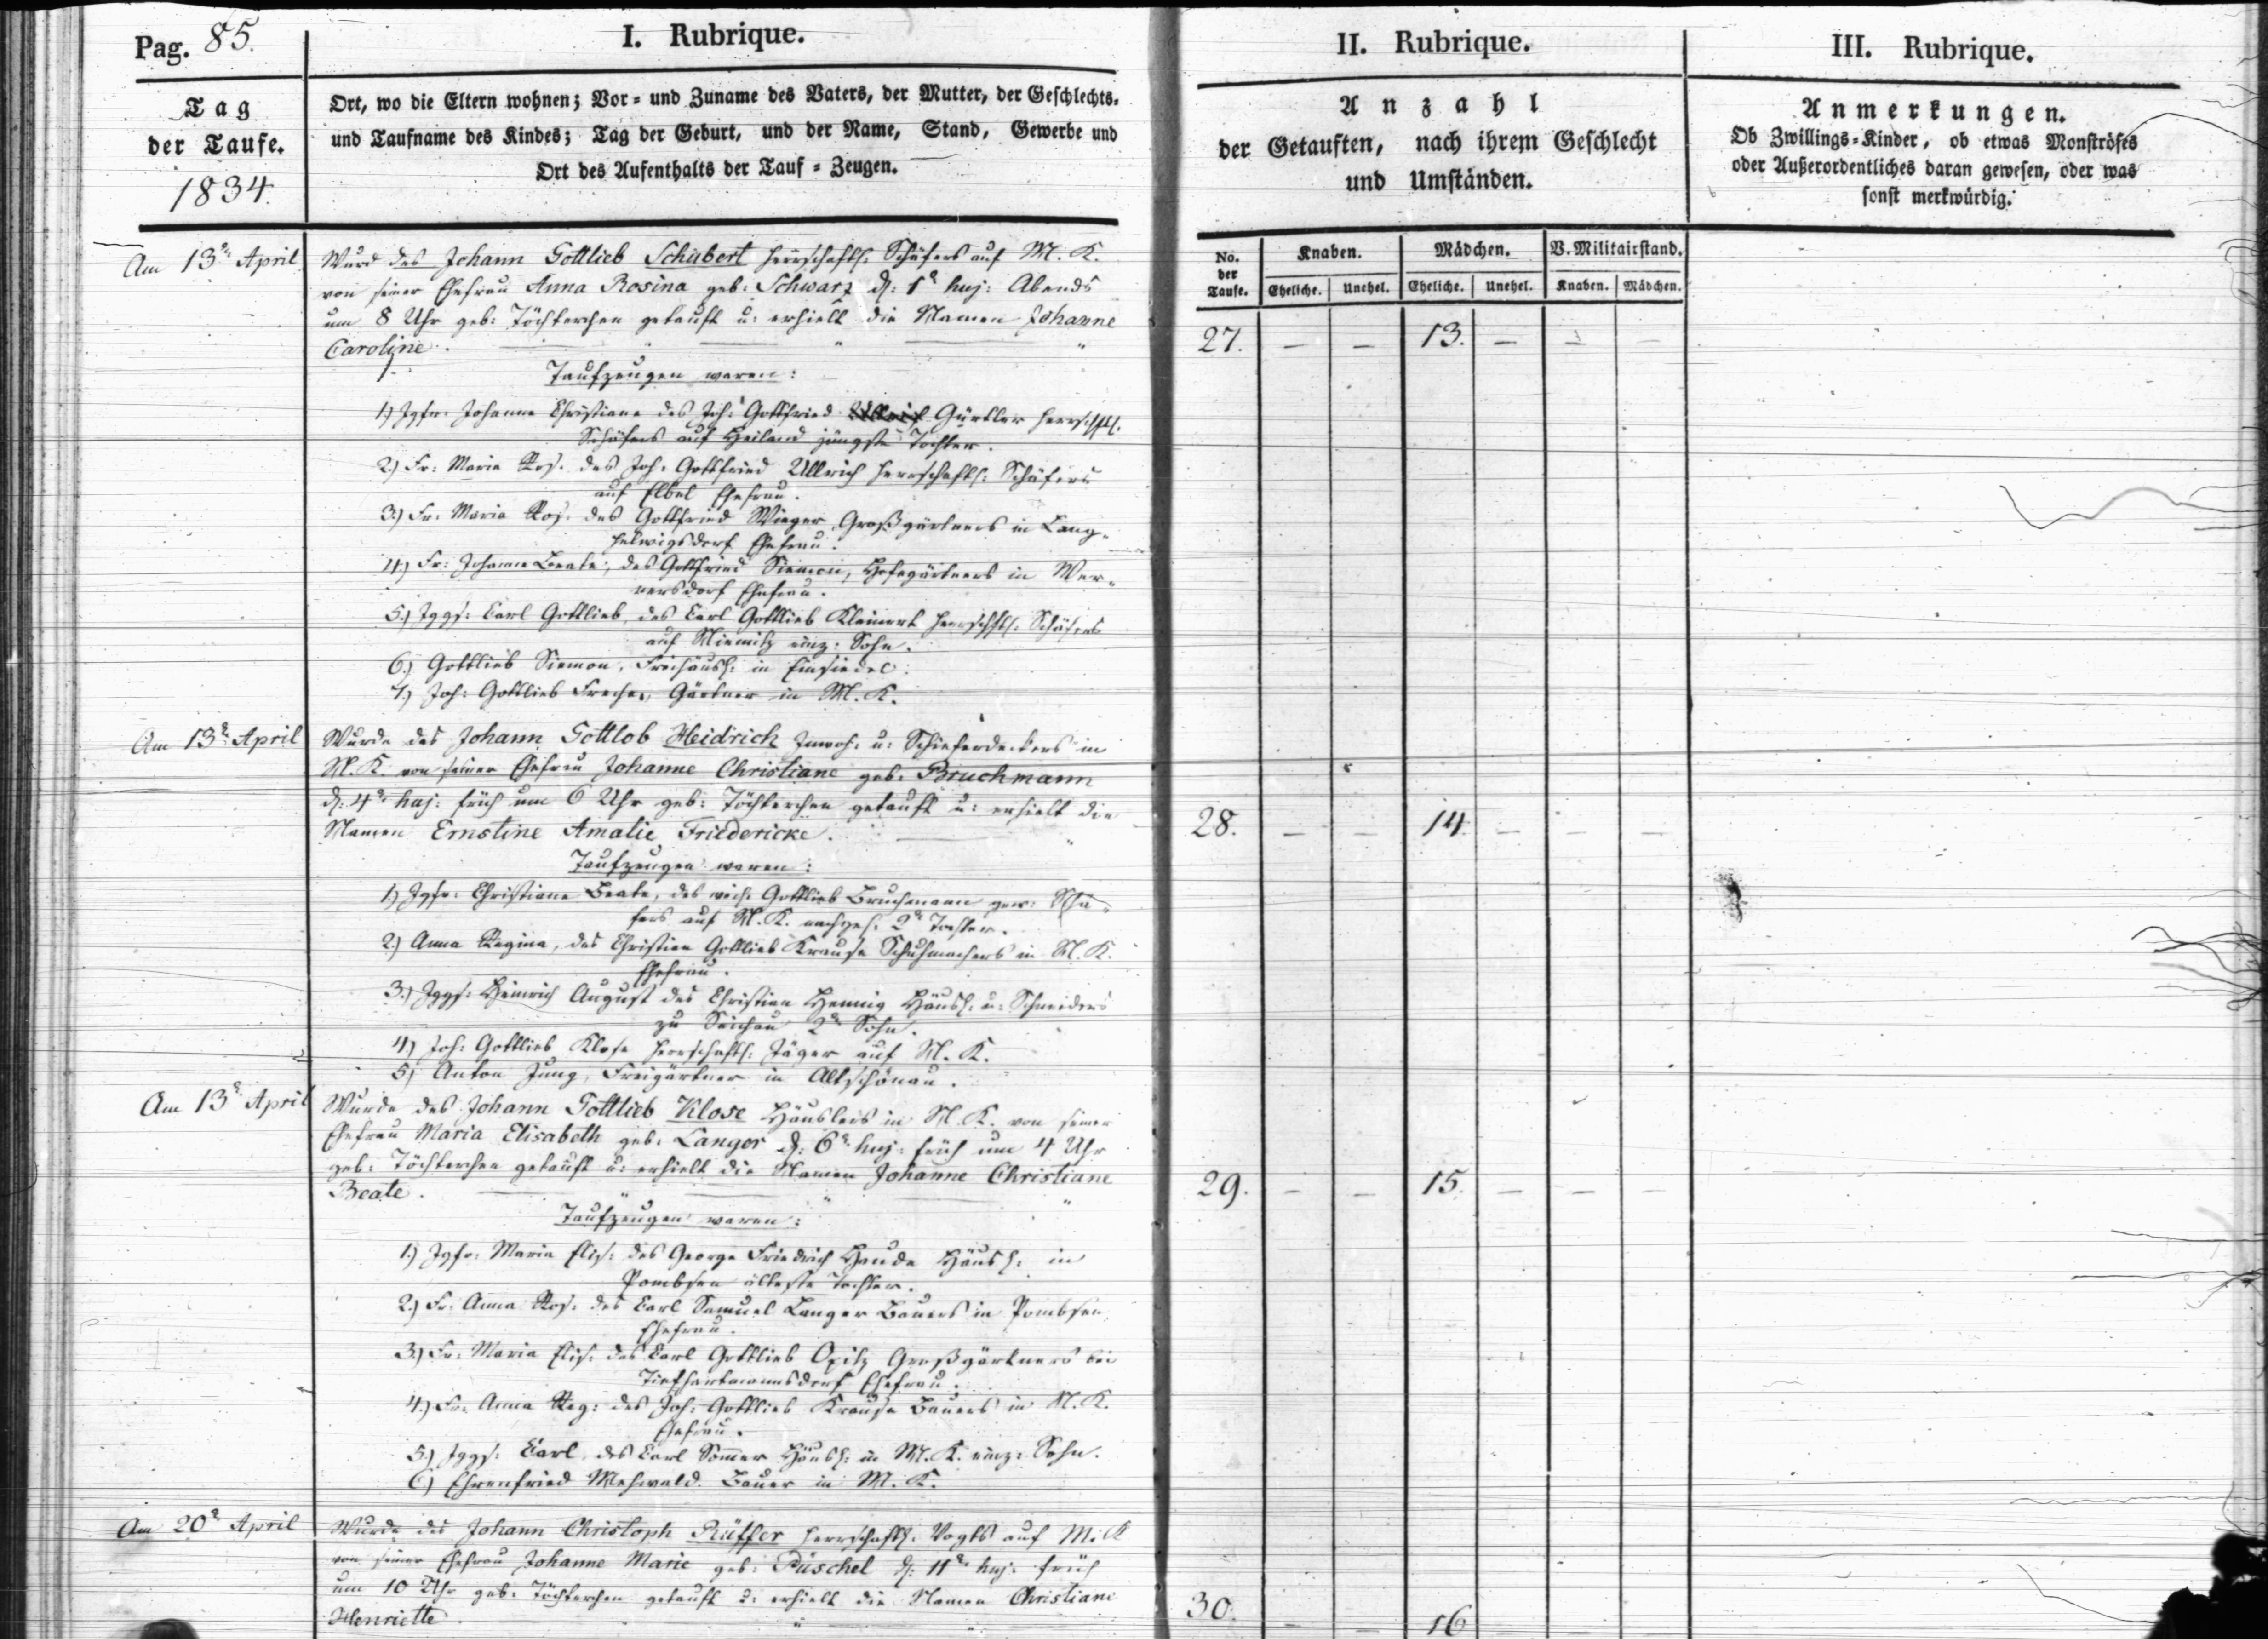 Pag. 85.
I. Rubrique.
II. Rubrique.
III. Rubrique.
Tag
der Taufe.
1834.
Ort, wo die Eltern wohnen; Vor- und Zuname des Vaters, der Mutter, der Geschlechts-
und Taufname des Kindes; Tag der Geburt, und der Name, Stand, Gewerbe und
Ort des Aufenthalts der Tauf-Zeugen.
Anzahl
der Getauften, nach ihrem Geschlecht
und Umständen.
Anmerkungen.
Ob Zwillings-Kinder, ob etwas Monströses
oder Außerordentliches daran gewesen, oder was
sonst merkwürdig.
No. der Taufe.
Knaben. Mädchen. V. Militairstand.
Eheliche. Unehel. Eheliche. Unehel. Knaben. Mädchen.
Am 13t April
Wurd des Johann Gottlieb Schubert herrschaftl: Schäfers auf M. K.
von seiner Ehefrau Anna Rosina geb: Schwarz d: 1t huj: Abends
um 8 Uhr geb: Töchterchen getauft u: erhielt die Namen Johanne
Caroline.
27. — — 13. — — —
Taufzeugen waren:
1.) Jgfr: Johanne Christiane des Joh: Gottfried Gürtler herrschftl.
Schäfers auf Heiland jüngste Tochter.
2.) Fr: Maria Ros. des Joh: Gottfried Ullrich herrschaftl: Schäfers
auf Elbel Ehefrau.
3.) Fr: Maria Ros: des Gottfried Wieger, Großgärtners in Lang-
helwigsdorf Ehefrau.
4.) Fr: Johanne Beate, des Gottfried Siemon, Hofegärtners in Wer-
nersdorf Ehefrau.
5.) Jggs: Carl Gottlieb, des Carl Gottlieb Kleinert herrschftl: Schäfers
auf einz: Sohn.
6.) Gottlieb Siemon, Freihäusl: in Einsiedel.
7.) Joh: Gottlieb Gärtner in M. K.
Am 13t April
Wurde des Johann Gottlob Heidrich Inwoh: u: Schieferdeckers in
M. K. von seiner Ehefrau Johanne Christiane geb: Bruchmann
d: 4t huj: früh um 6 Uhr geb: Töchterchen getauft u: erhielt die
Namen Ernstine Amalie Friedericke.
28. — — 14. — — —
Taufzeugen waren:
1.) Jgfr: Christiane Beate, des weil: Gottlieb Bruchmann gew: Schä-
fers auf M. K. nachgel: 2t Tochter.
2.) Anna Regina, des Christian Gottlieb Krause Schuhmachers in M. K.
Ehefrau.
3.) Jggs: Heinrich August des Christian Hennig Häusl: u: Schneiders
zu Seichau 2t Sohn.
4.) Joh: Gottlieb Klose herrschaftl: Jäger auf M. K.
5.) Anton Jung, Freigärtner in Altschönau.
Am 13t April
Wurde des Johann Gottlieb Klose Häuslers in M. K. von seiner
Ehefrau Maria Elisabeth geb: Langer d: 6t huj: früh um 4 Uhr
geb: Töchterchen getauft u: erhielt die Namen Johanne Christiane
Beate.
29. — — 15. — — —
Taufzeugen waren:
1.) Jgfr: Maria Elis: des George Friedrich Haude Häusl: in
Pombsen älteste Tochter.
2.) Fr. Anna Ros: des Carl Samuel Langer Bauers in Pombsen
Ehefrau.
3.) Fr: Maria Elis: des Carl Gottlieb Opitz Großgärtners bei
Tiefhartmannsdorf Ehefrau.
4.) Fr: Anna Reg: des Joh: Gottlieb Krause Bauers in M. K.
Ehefrau.
5.) Jggs: Carl, des Carl Sommer Häusl: in M. K. einz: Sohn.
6.) Ehrenfried Mehwald. Bauer in M. K.
Am 20t April
Wurde des Johann Christoph Rüffer herrschaftl: Vogts auf M. K
von seiner Ehefrau Johanne Marie geb: Püschel d: 11t huj: früh
um 10 Uhr geb: Töchterchen getauft u: erhielt die Namen Christiane
Henriette.
30. — — 16 — — —